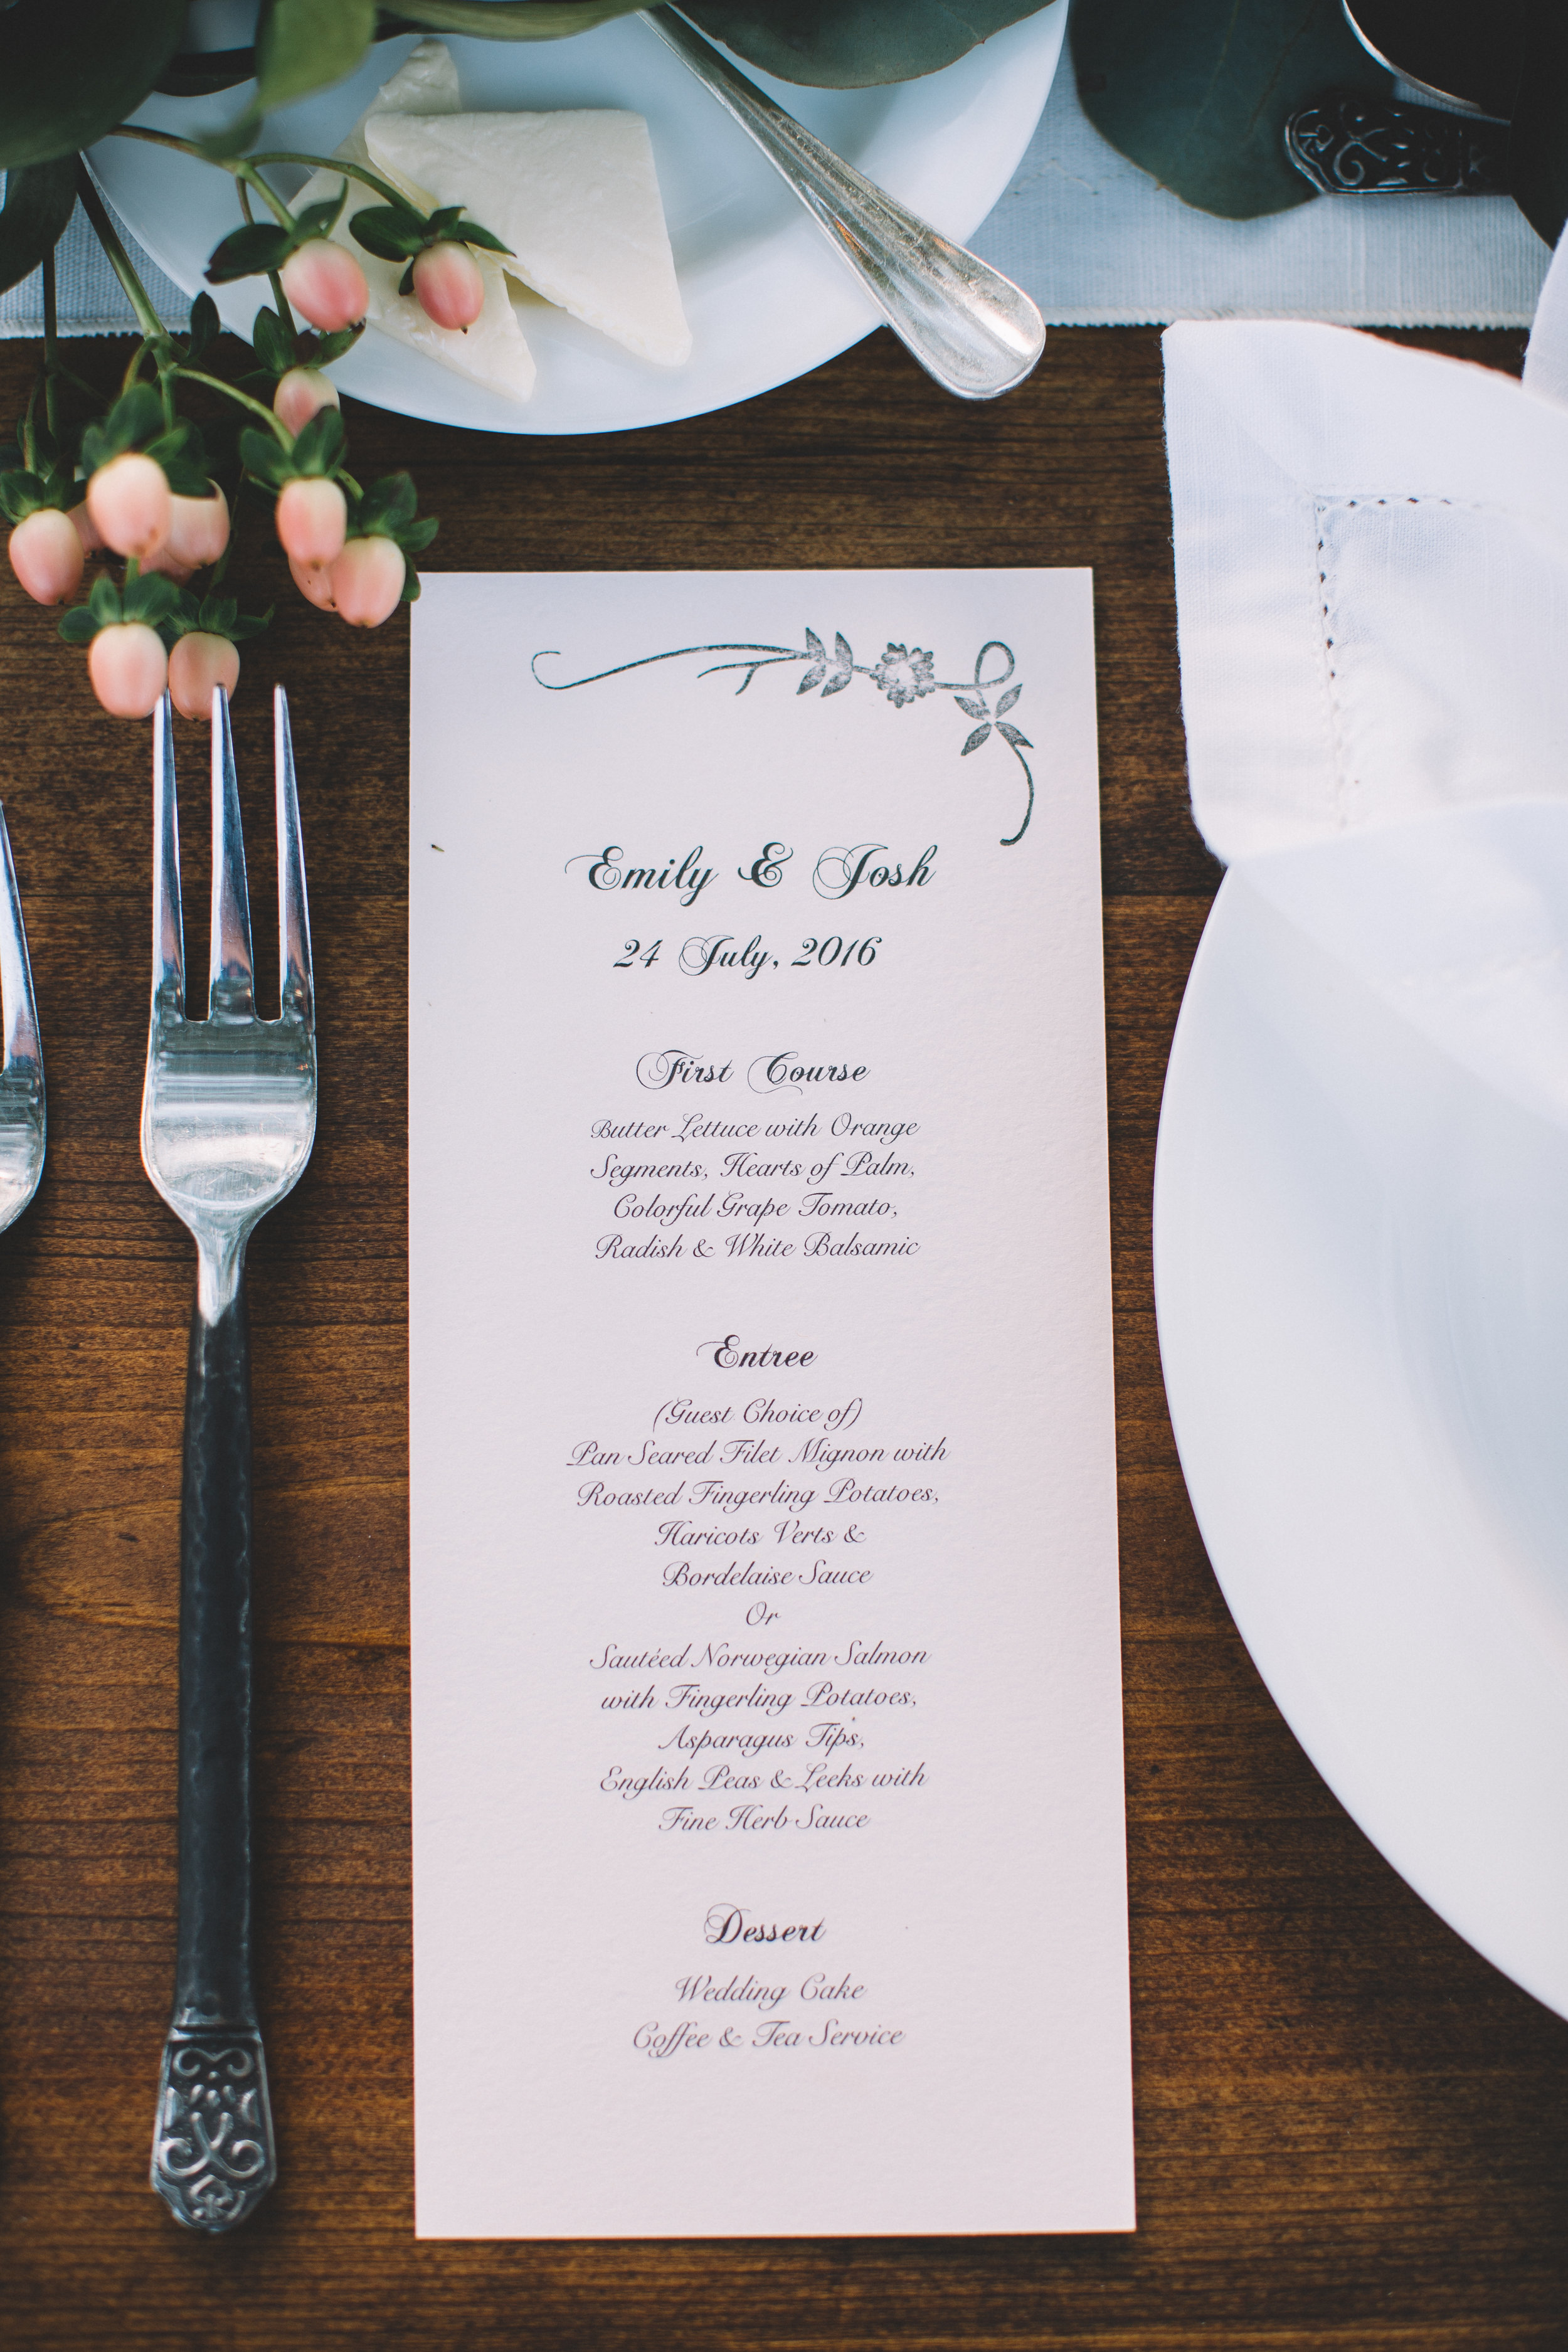 Emily & Josh
24 July, 2016
First Course
Butter Lettuce with Orange
Segments, Hearts of Palm,
Colorful Grape Tomato,
Radish & White Balsamic
Entree
(Guest Choice of)
Pan Seared Filet Mignon with
Roasted Fingerling Potatoes,
Haricots Verts &
Bordelaise Sauce
Or
Sautéed Norwegian Salmon
with Fingerling Potatoes,
Asparagus Tips,
English Peas & Leeks with
Fine Herb Sauce
Dessert
Wedding Cake
Coffee & Tea Service